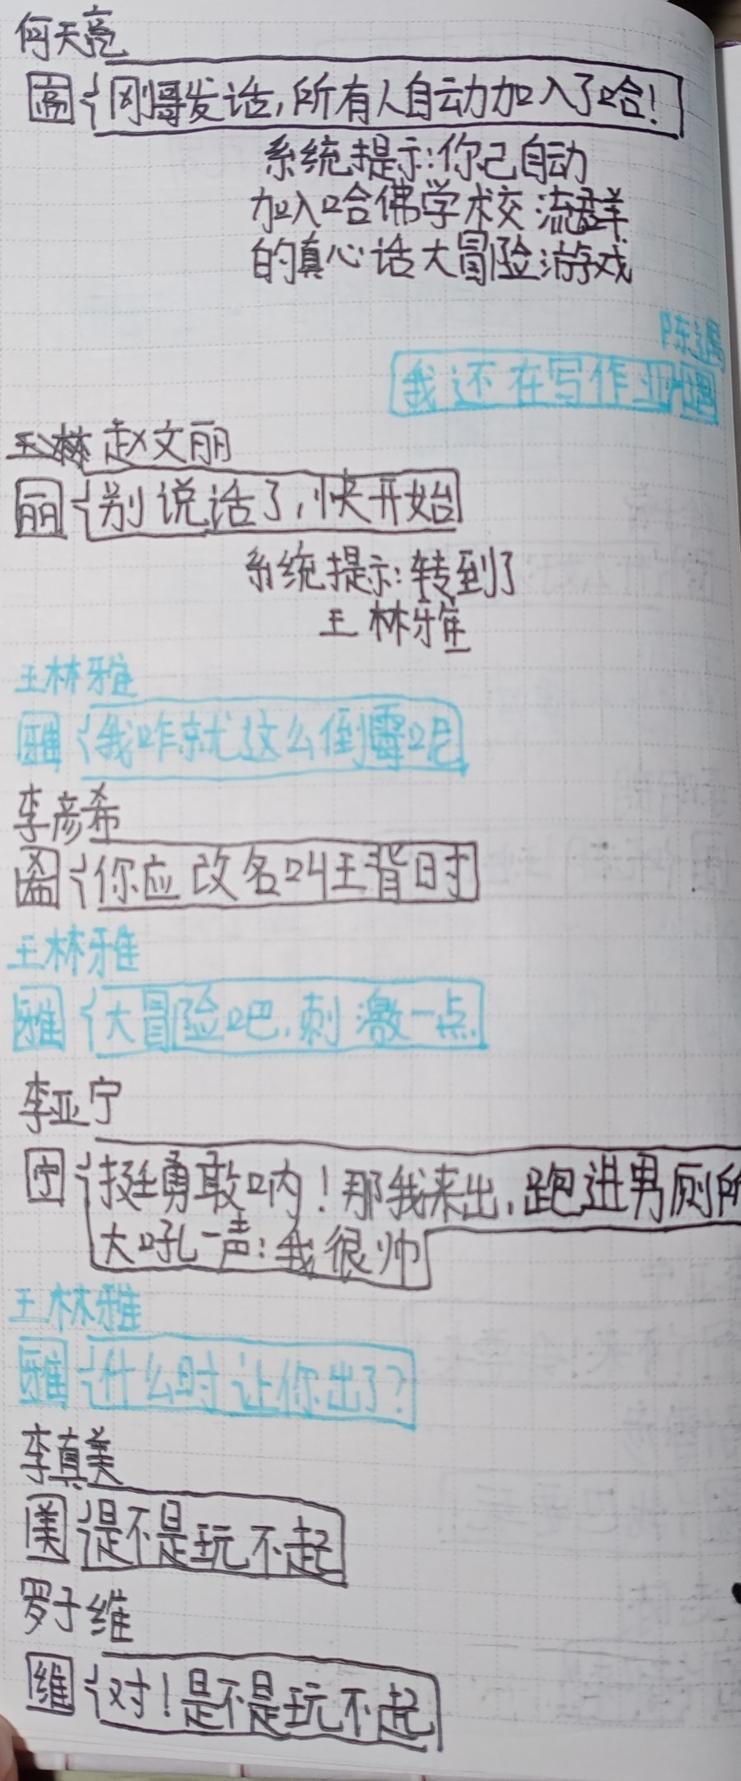 何天亮
亮 刚哥发话,所有人自动加入了哈!
系统提示:你已自动
加入哈佛学校交流群
的真心话大冒险游戏
我还在写作业
王林 赵文丽
丽 别说话了,快开始
系统提示:转到了
王林雅
王林雅
雅 我咋就这么倒霉呢
李彦希
希 你应改名叫王背时
王林雅
雅 大冒险吧,刺激一点
李亚宁
宁 挺勇敢呐!那我来出,跑进男厕所
大吼一声:我很帅
王林雅
雅 什么时让你出了?
李真美
美 是不是玩不起
罗于维
维 对!是不是玩不起